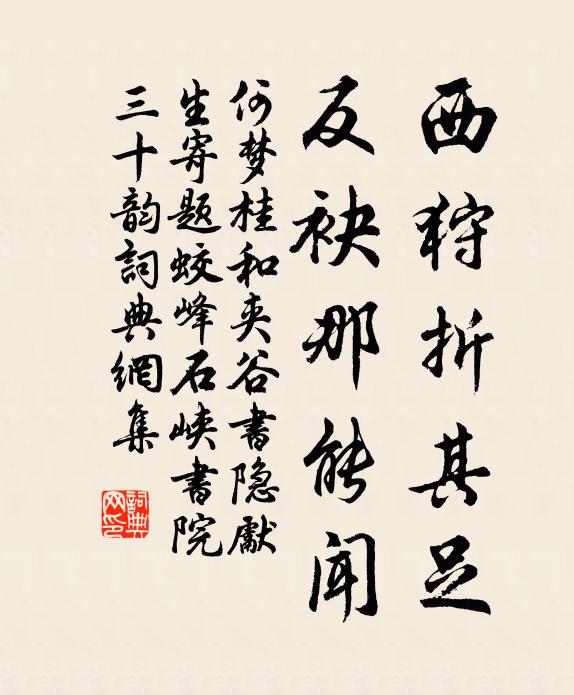 西狩折其足
反袂那能闻
何梦桂和夹谷书隐献
生寄题蛟峰石峡书院
三十韵词典網集
詞典
网印